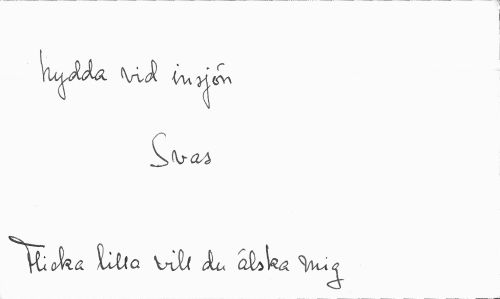 hydda vid insjön
Svas
Flicka lilla vill du älska mig